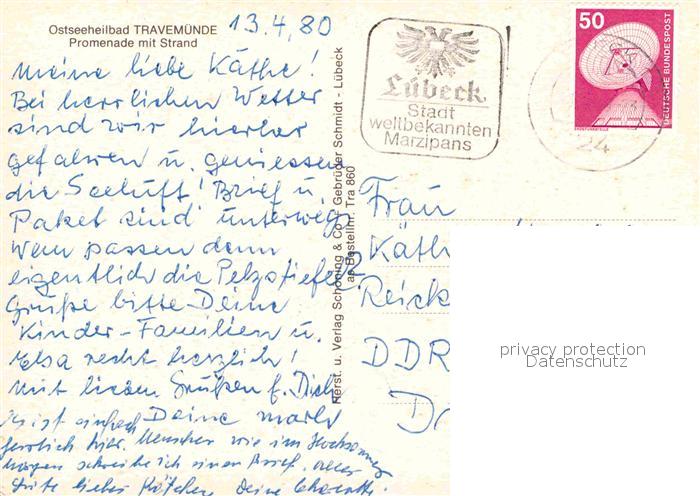 Ostseeheilbad TRAVEMÜNDE
Promenade mit Strand
13.4.80
Meine liebe Käthe!
Bei herrlichem Wetter
sind wir hierher
gefahren u. geniessen
die Seeluft! Brief u.
Paket sind unterwegs
Wem passen denn
eigentlich die Pelzstiefel?
Grüße bitte Deine
Kinder-Familien u.
Elsa recht herzlich!
Mit lieben Grüßen f. Dich
Deine
Es ist einfach
herrlich hier. Menschen wie im Hochsommer
Morgen schreibe ich einen Brief. Alles
Gute liebes Käthchen Deine
Herst. u. Verlag Schöning & Co. · Gebrüder Schmidt - Lübeck
an Bestellnr. Tra 860
Lübeck
Stadt
weltbekannten
Marzipans
50
DEUTSCHE BUNDESPOST
24
Frau
Käth
Reick
DDR
privacy protection
Datenschutz